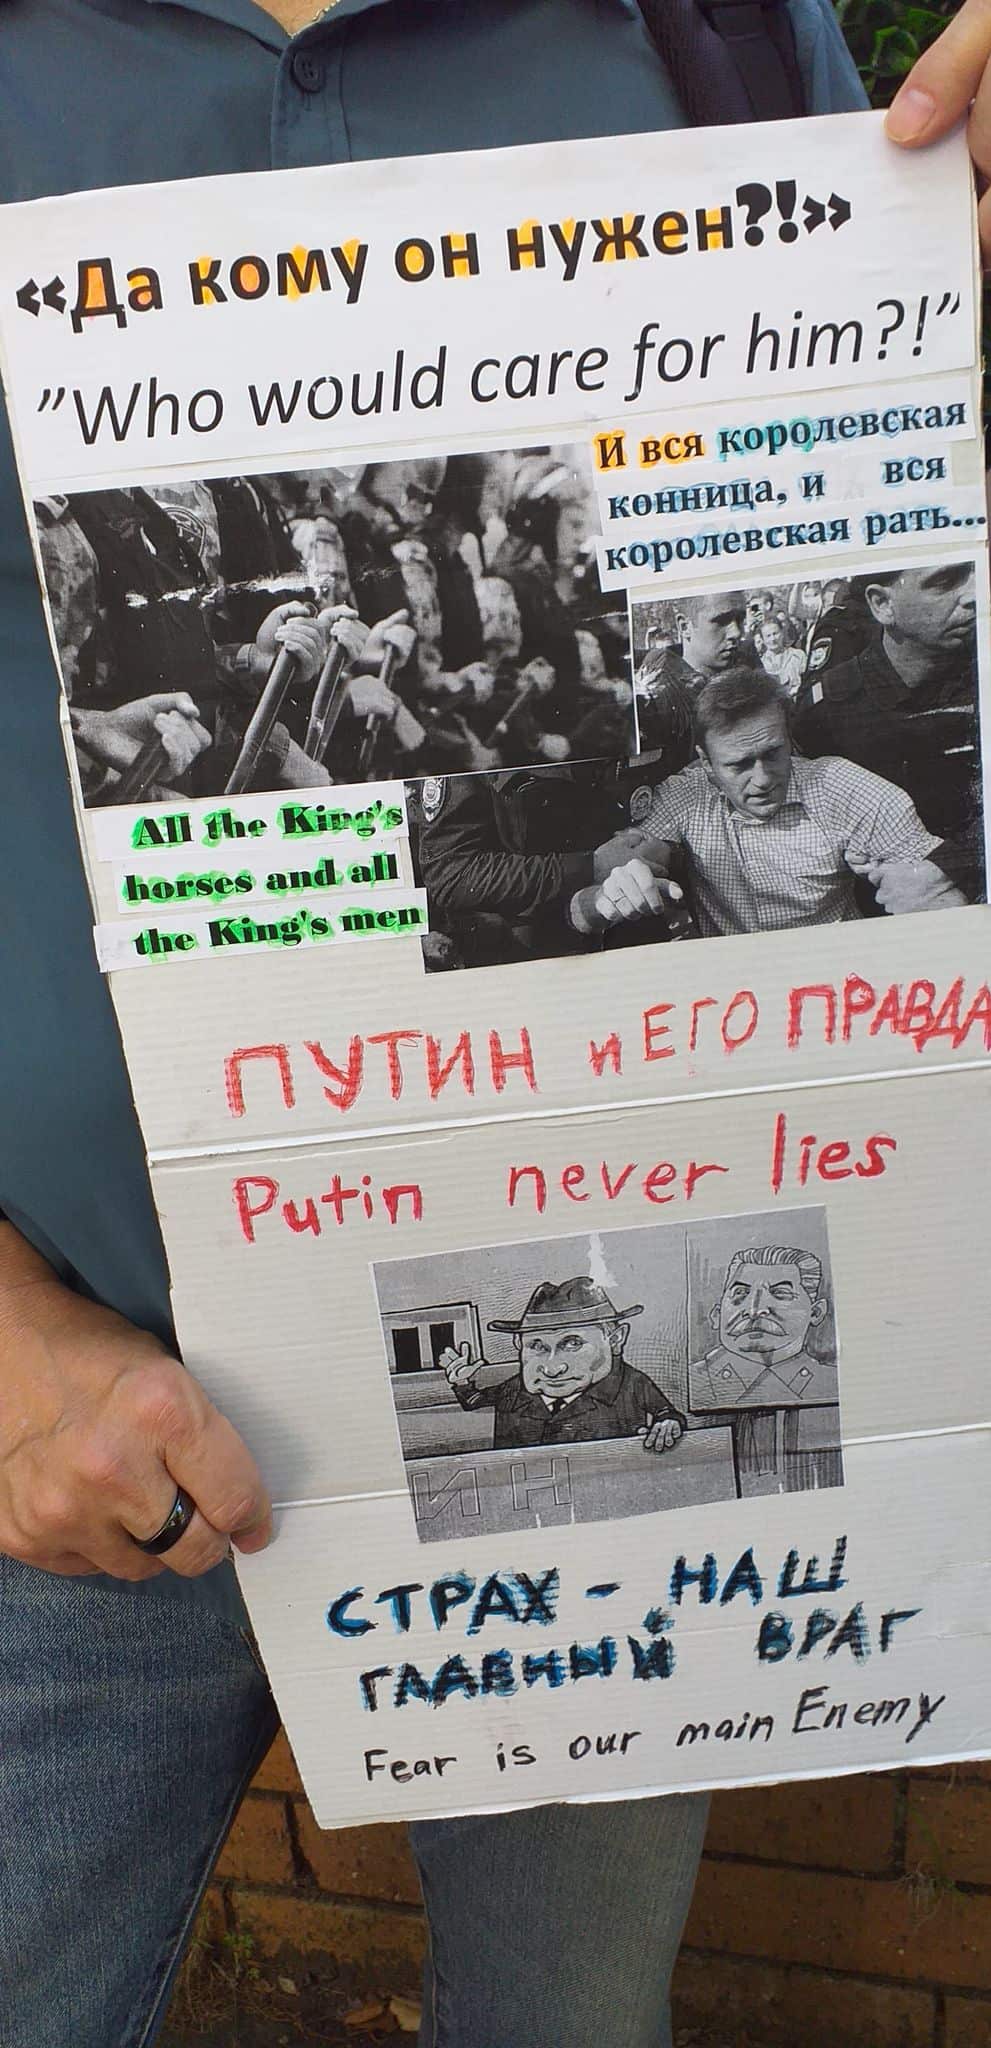 «Да кому он нужен?!»
"Who would care for him?!"
И вся королевская
конница, и вся
королевская рать...
All the King's
horses and all
the King's men
ПУТИН и ЕГО ПРАВДА
Putin never lies
ИН
СТРАХ - НАШ
ГЛАВНЫЙ ВРАГ
Fear is our main Enemy